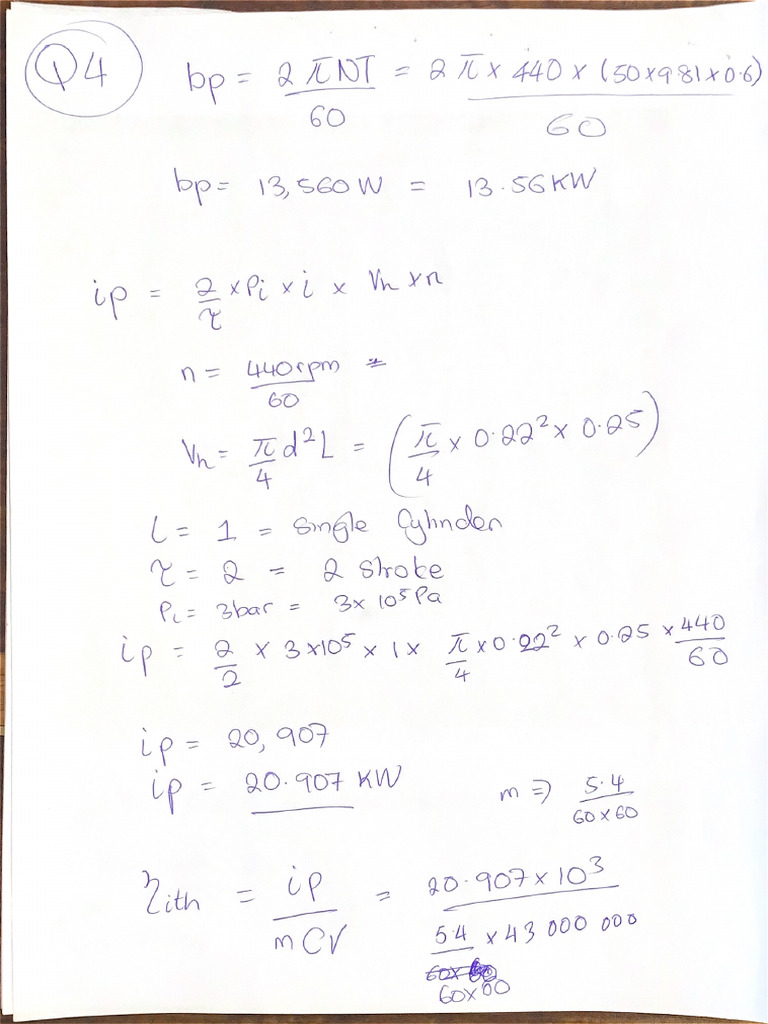 Q4
bp = 2πNT/60 = 2π × 440 × (50×9.81×0.6)/60
bp = 13,560 W = 13.56 KW
ip = 2/τ × Pi × i × Vh × n
n = 440rpm/60 =
Vh = π/4 d²L = (π/4 × 0.22² × 0.25)
i = 1 = Single Cylinder
τ = 2 = 2 stroke
Pi = 3bar = 3×10⁵ Pa
ip = 2/2 × 3×10⁵ × 1 × π/4 × 0.22² × 0.25 × 440/60
ip = 20,907
ip = 20.907 KW
m ⇒ 5.4/60×60
ηith = ip/mCV = 20.907×10³/(5.4/60×60 × 43 000 000)